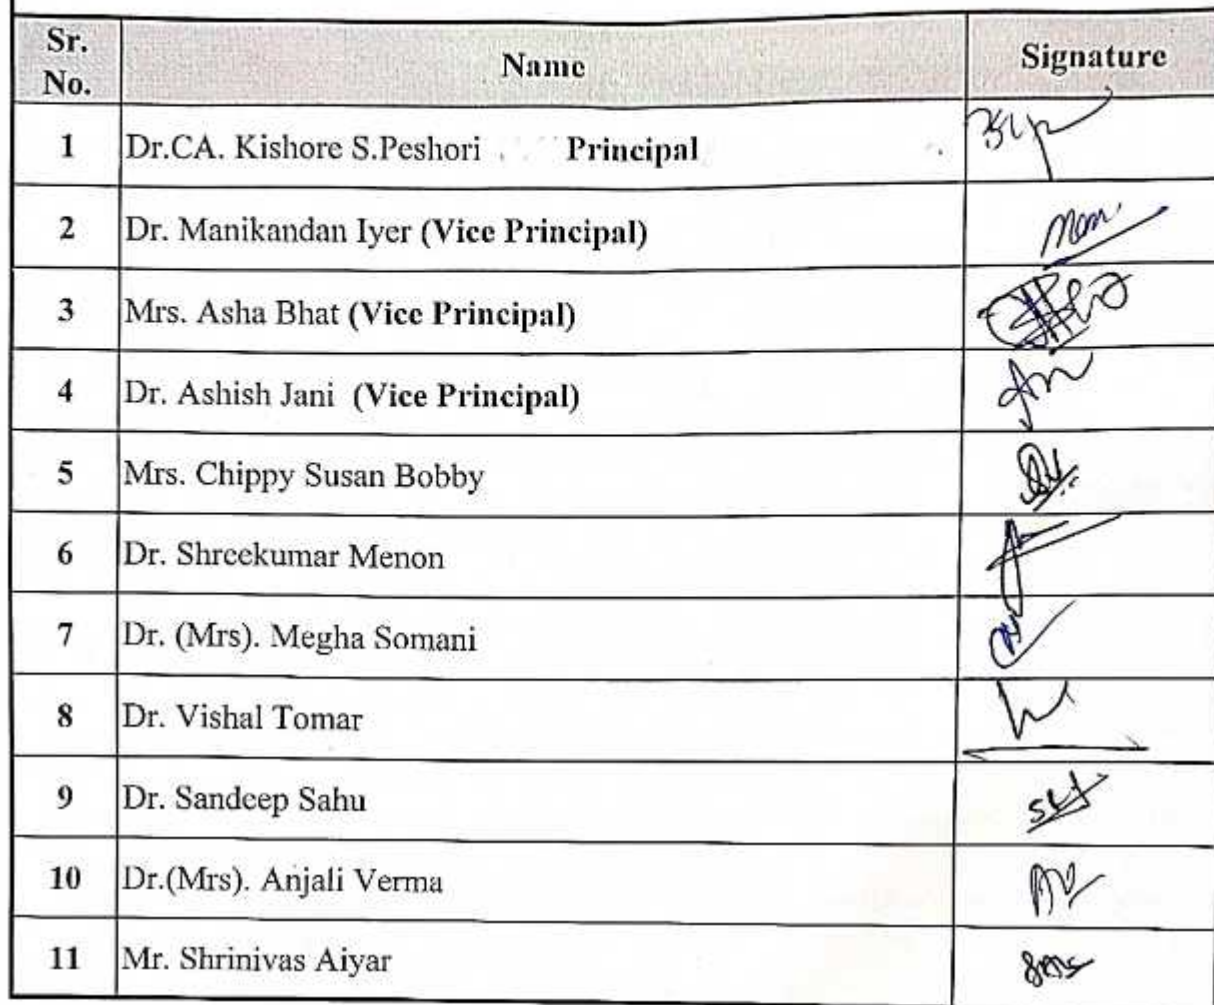 Sr. No. Name Signature
1 Dr.CA. Kishore S.Peshori Principal
2 Dr. Manikandan Iyer (Vice Principal)
3 Mrs. Asha Bhat (Vice Principal)
4 Dr. Ashish Jani (Vice Principal)
5 Mrs. Chippy Susan Bobby
6 Dr. Shreekumar Menon
7 Dr. (Mrs). Megha Somani
8 Dr. Vishal Tomar
9 Dr. Sandeep Sahu
10 Dr.(Mrs). Anjali Verma
11 Mr. Shrinivas Aiyar